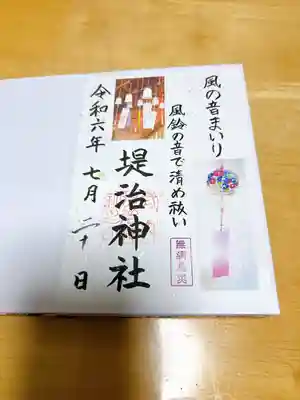 風の音まいり
風鈴の音で清め祓い
堤治神社
令和六年 七月 二十日